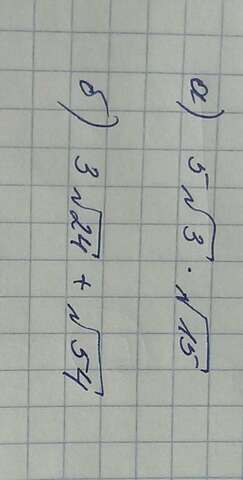 а) 5√3 · √15
б) 3√24 + √54